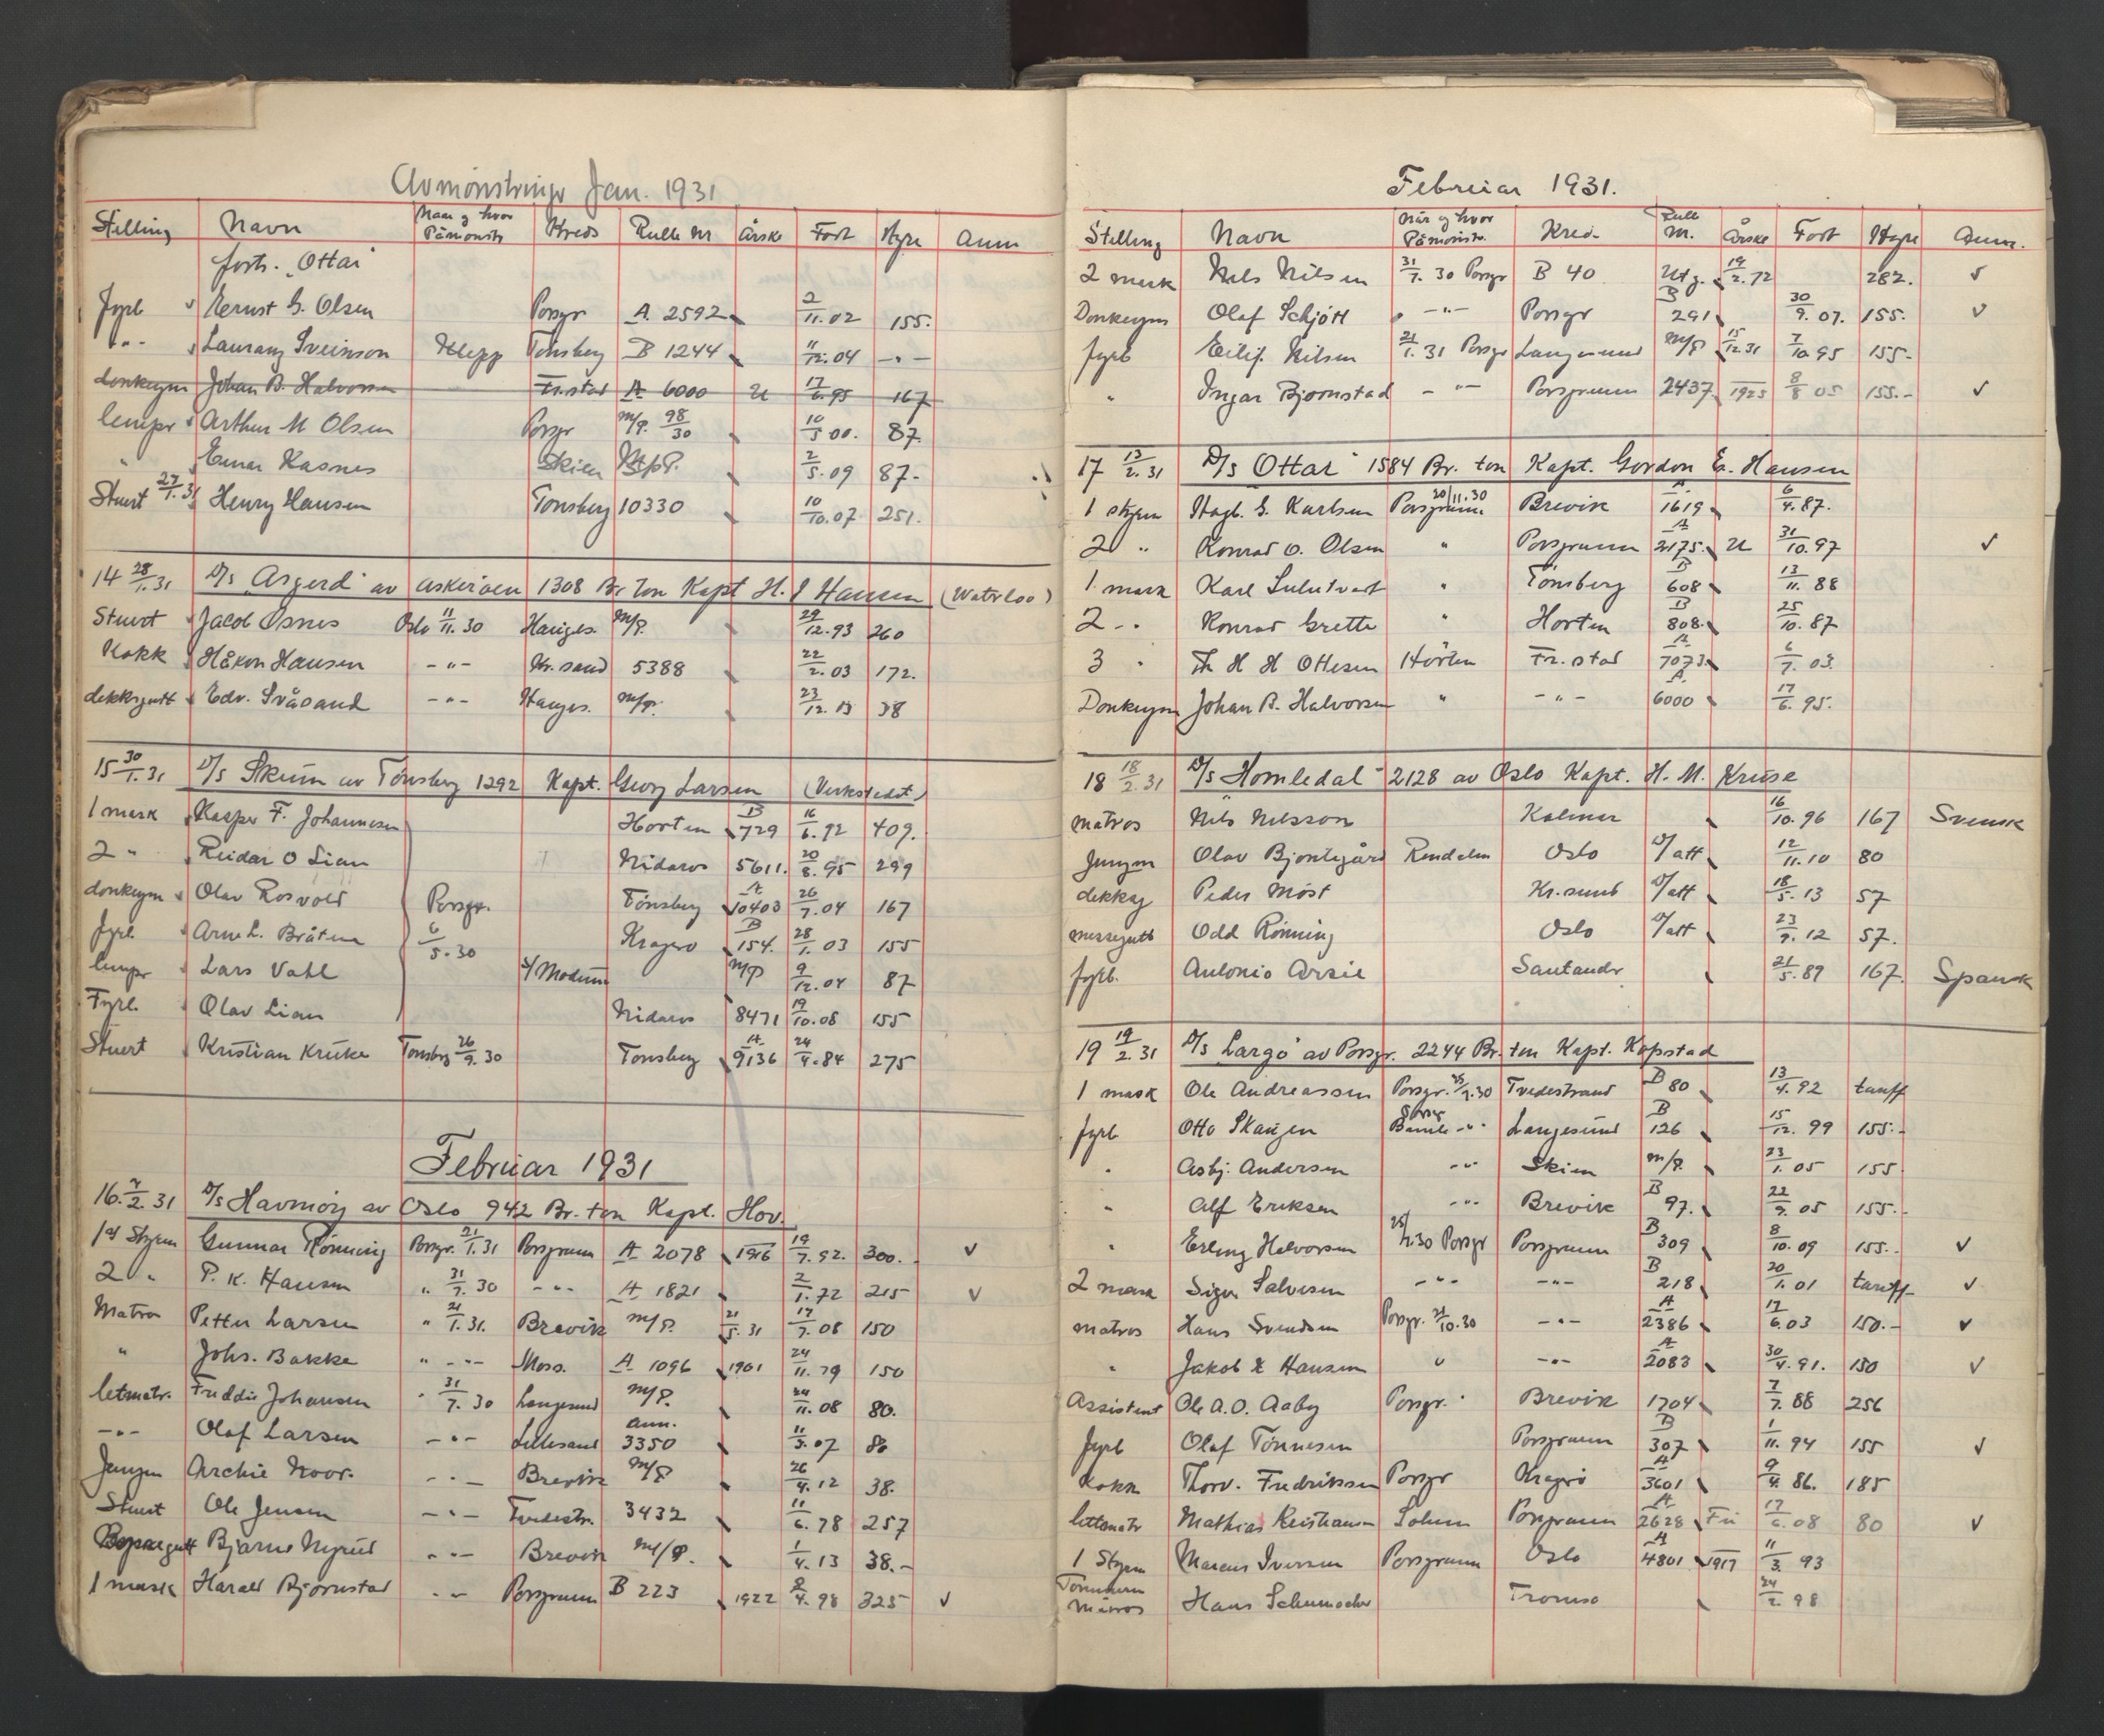 Avmönstringer Jan. 1931
Stilling Navn Naar og hvor Påmönstr Kreds Rulle Nr Årskl Født Hyre Anm
forts. "Ottar"
Fyrb Ernst G. Olsen Porsgr A. 2592 2/11.02 155.
-"- Laurang Sveinson Klepp Tönsberg B 1244 11/12.04 -"-
donkeym Johan B. Halvorsen Fr.stad A 6000 U 17/6.95 167
lemper Arthur M Olsen Porsgr m/p. 98/30 10/5 00. 87.
" Einar Kasnes Skien M/P. 2/5.09 87.
Stuert 27/1.31 Henry Hansen Tönsberg 10330 10/10.07 251.
14 28/1.31 D/s "Asgerd" av Askeröen 1308 Br Ton Kapt H. J Hansen (Waterloo)
Stuert Jacob Osnes Oslo 11/11.30 Hauges. m/p. 29/12.93 260
Kokk Håkon Hansen -"- Kr.sand 5388 22/2.03 172.
dekksgutt Edv. Svåsand -"- Hauges. m/p. 23/12.13 38
15 30/1.31 D/s Skum av Tönsberg 1292 Kapt. Georg Larsen (Verkstedet)
1 mask Kasper F. Johannesen Horten B 729 16/6.92 409.
2 " Reidar O Lian Nidaros 5611. 20/8.95 299
donkeym Olav Rosvold Porsgr. Tönsberg A 10403 26/7.04 167
fyrb. Arne L. Bråten 6/5.30 Kragerö B 154. 28/1.03 155
lemper Lars Vahl S/Modum m/p 9/12.04 87
Fyrb. Olav Lian Nidaros 8471 19/10.08 155
Stuert Kristian Kruke Tönsberg 26/9.30 Tönsberg A. 9136 24/4.84 275
Februar 1931
16. 7/2.31 D/s Havmöy av Oslo 942 Br. ton Kapt. Hov.
1st Styrm Gunnar Rönning Porsgr. 21/1.31 Porsgrunn A 2078 1916 19/7.92. 300.-
2 " P. K. Hansen " 31/7.30 -"- A 1821 2/1.72 215
Matros Petter Larsen " 21/1.31. Brevik m/p. 21/5.31 17/7.08 150
" Johs. Bakke " -"- Moss. A 1096 1901 24/11.79 150
letmatr. Freddie Johansen " 31/7.30 Langesund m/p. 24/11.08 80.
-"- Olaf Larsen -"- Lillesand ann. 3350 11/3.07 80
Jungm Archie Moor. -"- Brevik m/p 26/4.12 38.
Stuert Ole Jensen -"- Tvedestr. 3432 11/6.78 257
Byssegutt Bjarne Myrud -"- Brevik m/p. 1/4.13 38.-
1 mask Harald Björnstad -"- Porsgrunn B 223 1922 2/4.98 325
Februar 1931.
Stilling Navn Når og hvor Påmönstr. Kred. Rulle nr. Årskl Født Hyre Anm.
2 mask Nils Nilsen 31/7.30 Porsgr B 40 Utg. 19/2.72 282.
Donkeym Olaf Schjött " -"- Porsgr B 291 30/9.07. 155.
fyrb Eilif. Nilsen 21/1.31 Porsgr Langesund m/p 15/12 31 7/10 95 155-
" Ingar Bjornstad -"- Porsgrunn 2437 1925 8/8 05 155.-
17 13/2.31 D/s "Ottar" 1584 Br. ton Kapt. Gordon E. Hansen
1 styrm Hagb. G. Karlsen Porsgrunn 20/11.30 Brevik A 1619 6/4.87.
2 " Konrad O. Olsen " Porsgrunn A 2175. U 31/10.97
1 mask Karl " Tönsberg B 608 13/11.88
2 -"- Konrad Grette " Horten B 808. 25/10.87
3 " Th H H Ottesen Horten Fr.stad A 7073 6/7.03.
Donkeym Johan B. Halvorsen " -"- A 6000 17/6.95.
18 18/2.31 D/s "Homledal" 2128 av Oslo Kapt. H. M. Kruse
matros Nils Nilsson Kalmar 16/10.96 167 Svensk
Jungm Olav Bjontegård Rendalen Oslo D/att 12/11.10 80
dekksg Peder Möst Kr.sund D/att 18/5.13 57
messegutt Odd Rönning Oslo D/att 23/9.12 57.
fyrb. Antonio Arsie Santander 21/5.89 167. Spansk
19 19/2.31 D/s "Largo" av Porsgr. 2244 Br. ton Kapt. Kopstad
1 mask Ole Andreassen Porsgr. 25/7.30 Tvedestrand B 80 13/4.92 tariff
fyrb Otto Skaugen Bamle -"- Langesund B 126 15/12.99 155.-
" Asbj. Andersen -"- Skien m/p. 23/1.05 155
" Alf Eriksen -"- Brevik B 97. 22/9.05 155.-
" Erling Halvorsen 25/7.30 Porsgr Porsgrunn B 309 8/10.09 155.-
2 mask Sigv Salvesen -"- -"- B 218 20/1.01 tariff
matros Hans Svendsen Porsgr. 21/10.30 -"- A 2386 17/6.03 150.-
" Jakob K Hansen " -"- A 2083 30/4.91. 150
Assistent Ole A. O. Aaby Porsgr. " Brevik 1704 7/7.88 256
fyrb Olaf Tönnesen Porsgrunn B 307 1/11.94 155
Kokk Thorv. Fredriksen Porsgr Kragerö A 3601 9/4.86. 185
lettmatr Mathias Kristiansen Solum Porsgrunn A 2628 Fri 17/6.08 80
1 Styrm Marcus Iversen Porsgrunn Oslo A 4801 1917 11/3.93
Tömmerm Matros Hans Schumacher Tromsö 24/2.98